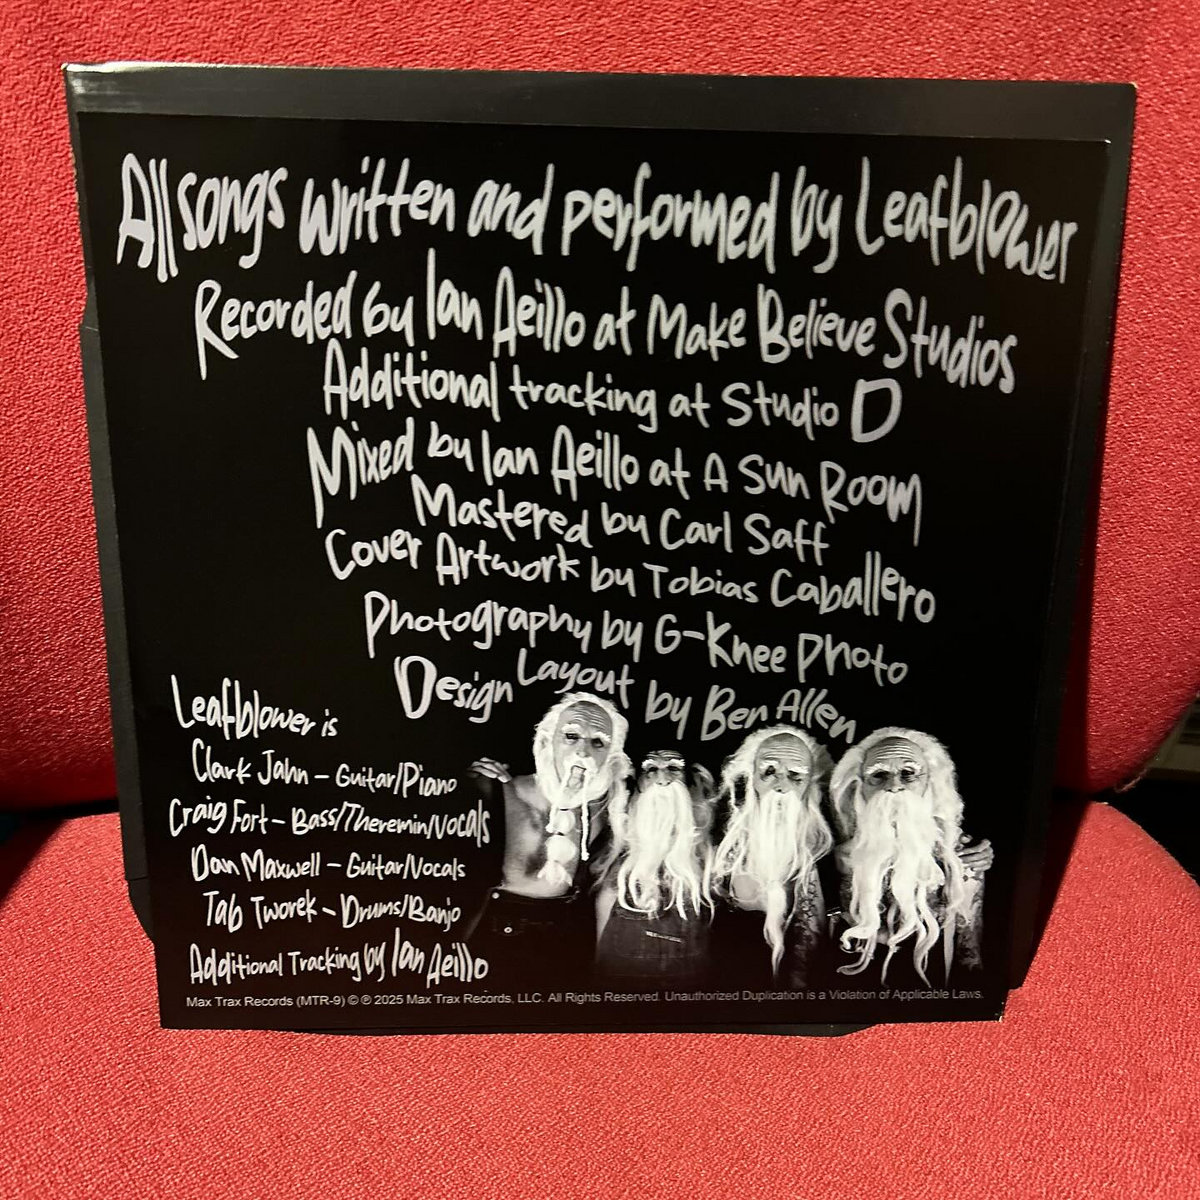 All songs written and performed by Leafblower
Recorded by Ian Aeillo at Make Believe Studios
Additional tracking at Studio D
Mixed by Ian Aeillo at A Sun Room
Mastered by Carl Saff
Cover Artwork by Tobias Caballero
Photography by G-Knee Photo
Design Layout by Ben Allen
Leafblower is
Clark Jahn - Guitar/Piano
Craig Fort - Bass/Theremin/Vocals
Dan Maxwell - Guitar/Vocals
Tab Tworek - Drums/Banjo
Additional Tracking by Ian Aeillo
Max Trax Records (MTR-9) © ℗ 2025 Max Trax Records, LLC. All Rights Reserved. Unauthorized Duplication is a Violation of Applicable Laws.